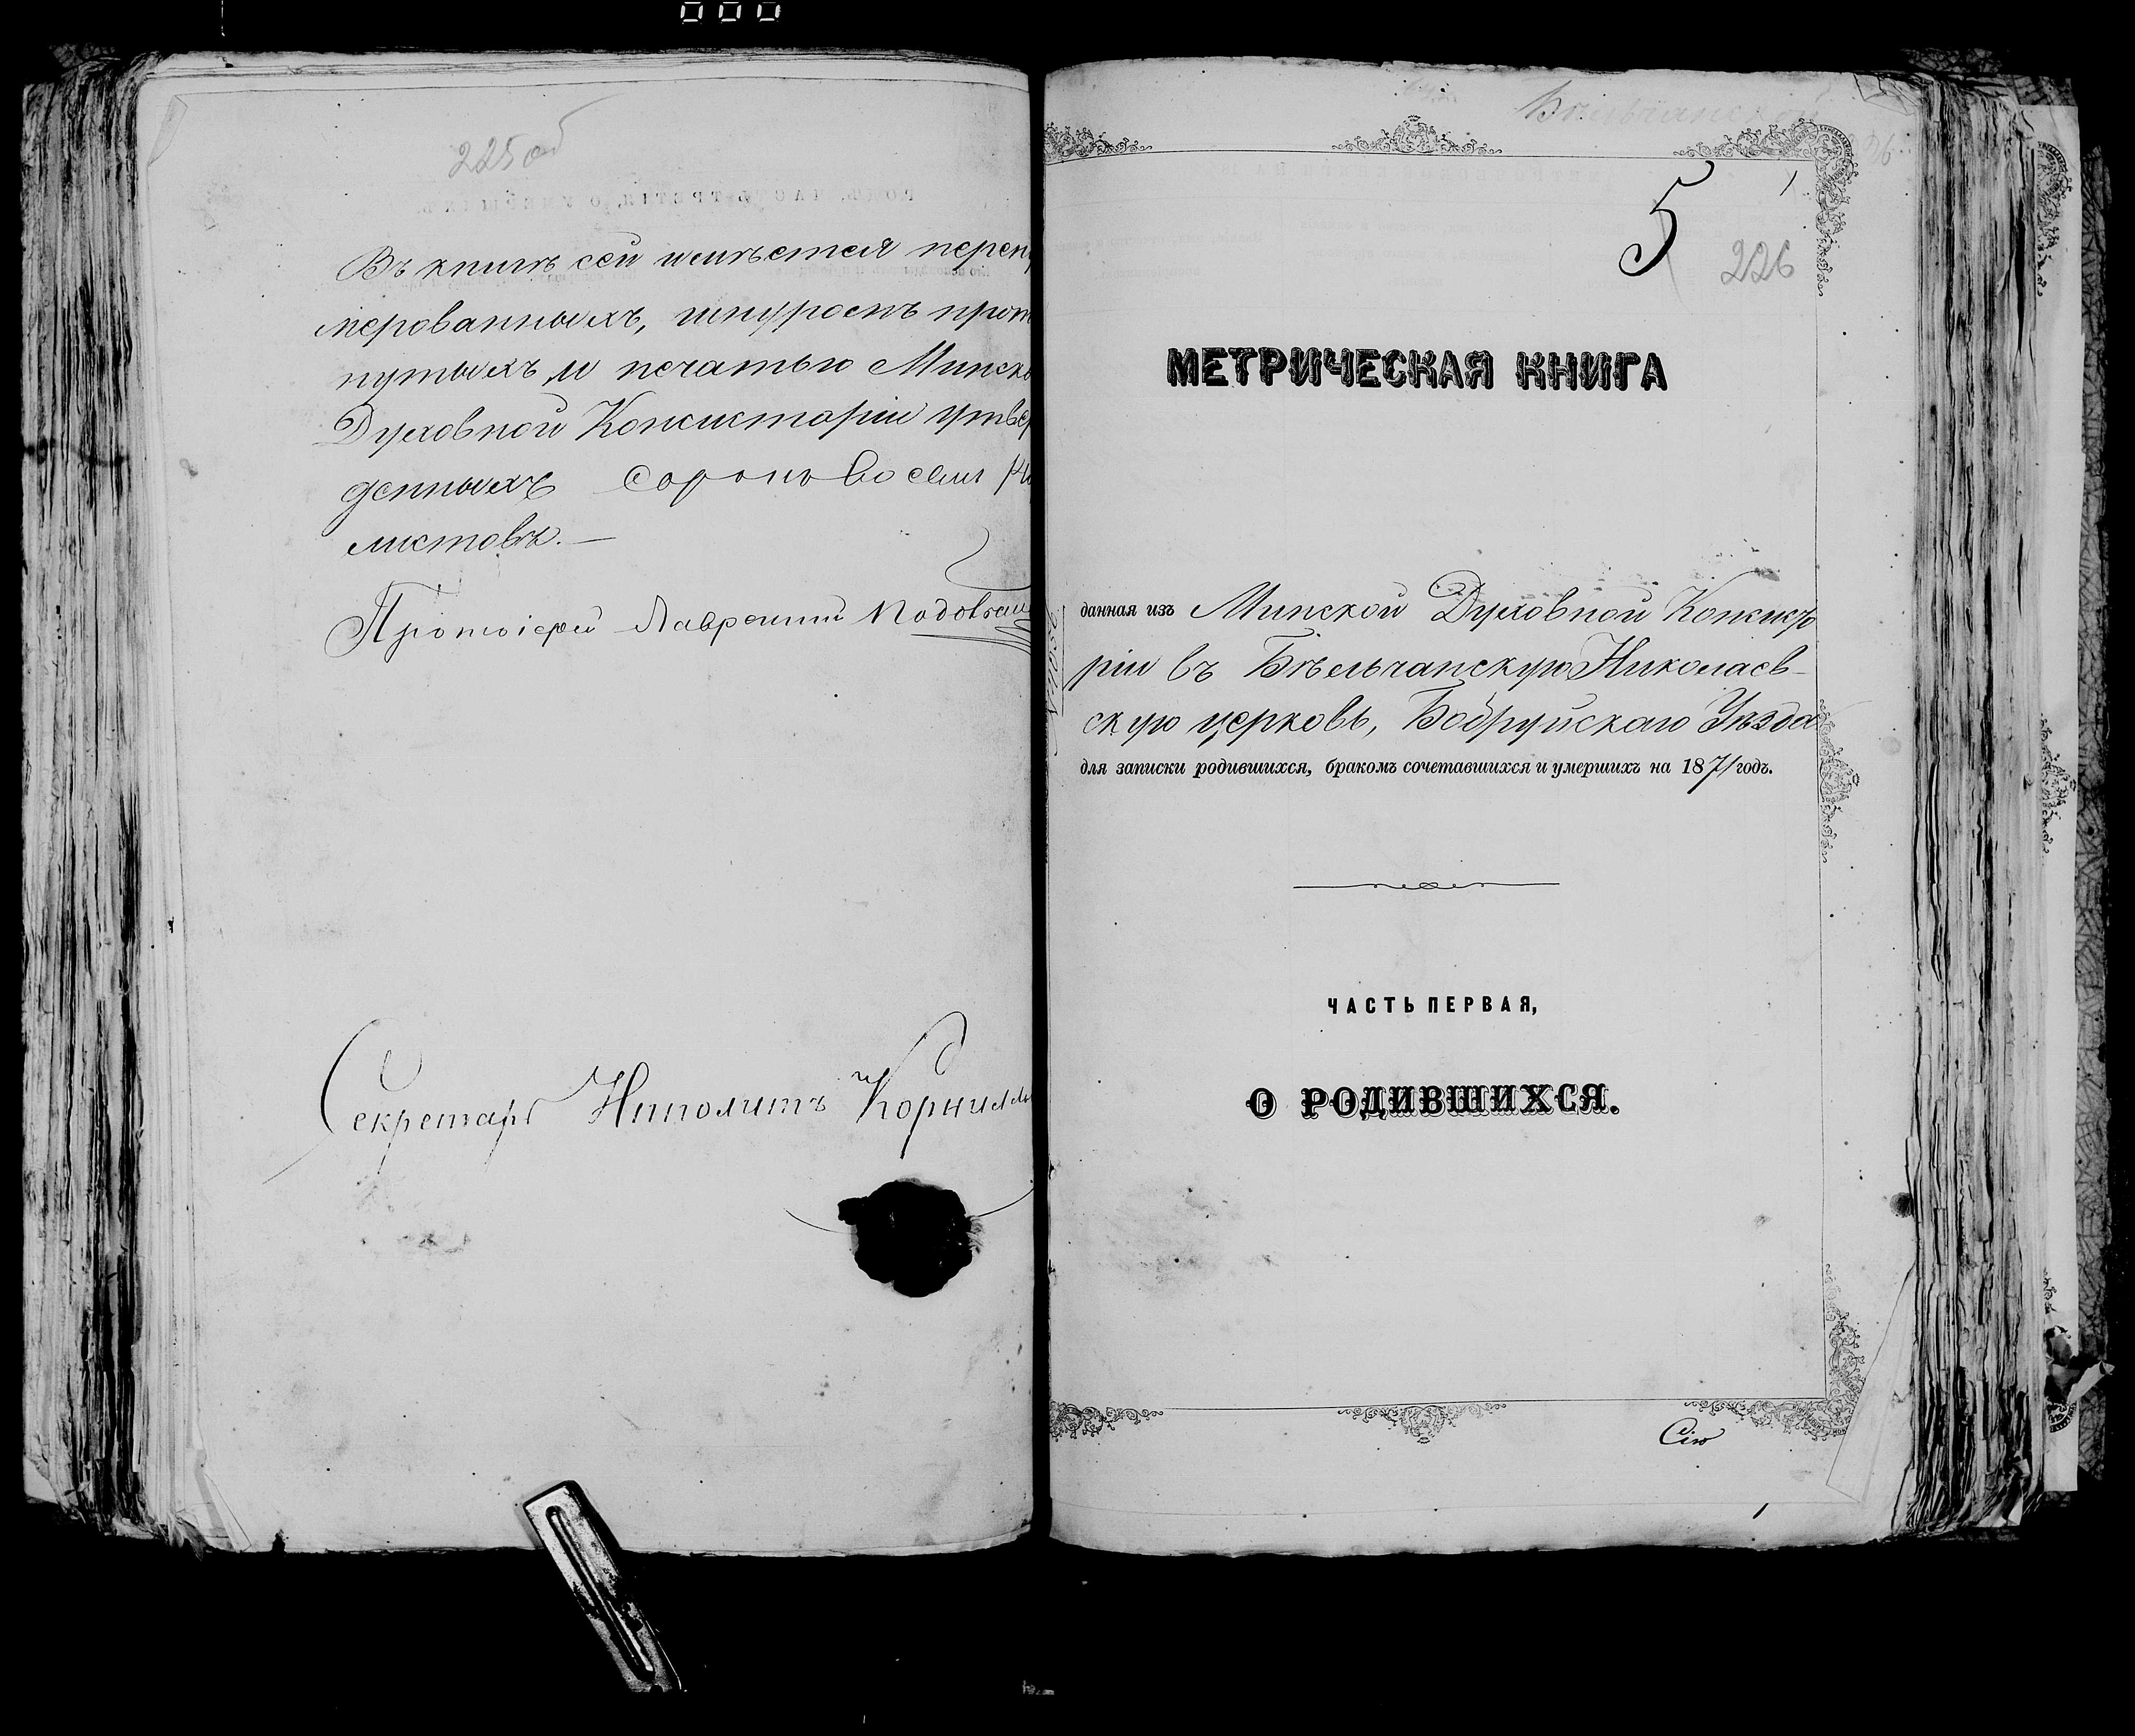 225 об
Въ книгѣ сей имѣется перен
мерованныхъ, шнуромъ прот
нутыхъ и печатью Минско
Духовной Консисторіи утвер
денныхъ сорокъ восемь /4
листовъ. —
Протоіерей Лаврентій
Секретарь Ипполитъ Корнил
Бѣльчанской
5
226
МЕТРИЧЕСКАЯ КНИГА
данная изъ Минской Духовной Консисто
ріи въ Бѣльчанскую Николаев-
скую церковь, Бобруйскаго Уѣзда
для записки родившихся, бракомъ сочетавшихся и умершихъ на 1871 годъ.
ЧАСТЬ ПЕРВАЯ,
О РОДИВШИХСЯ.
Сію